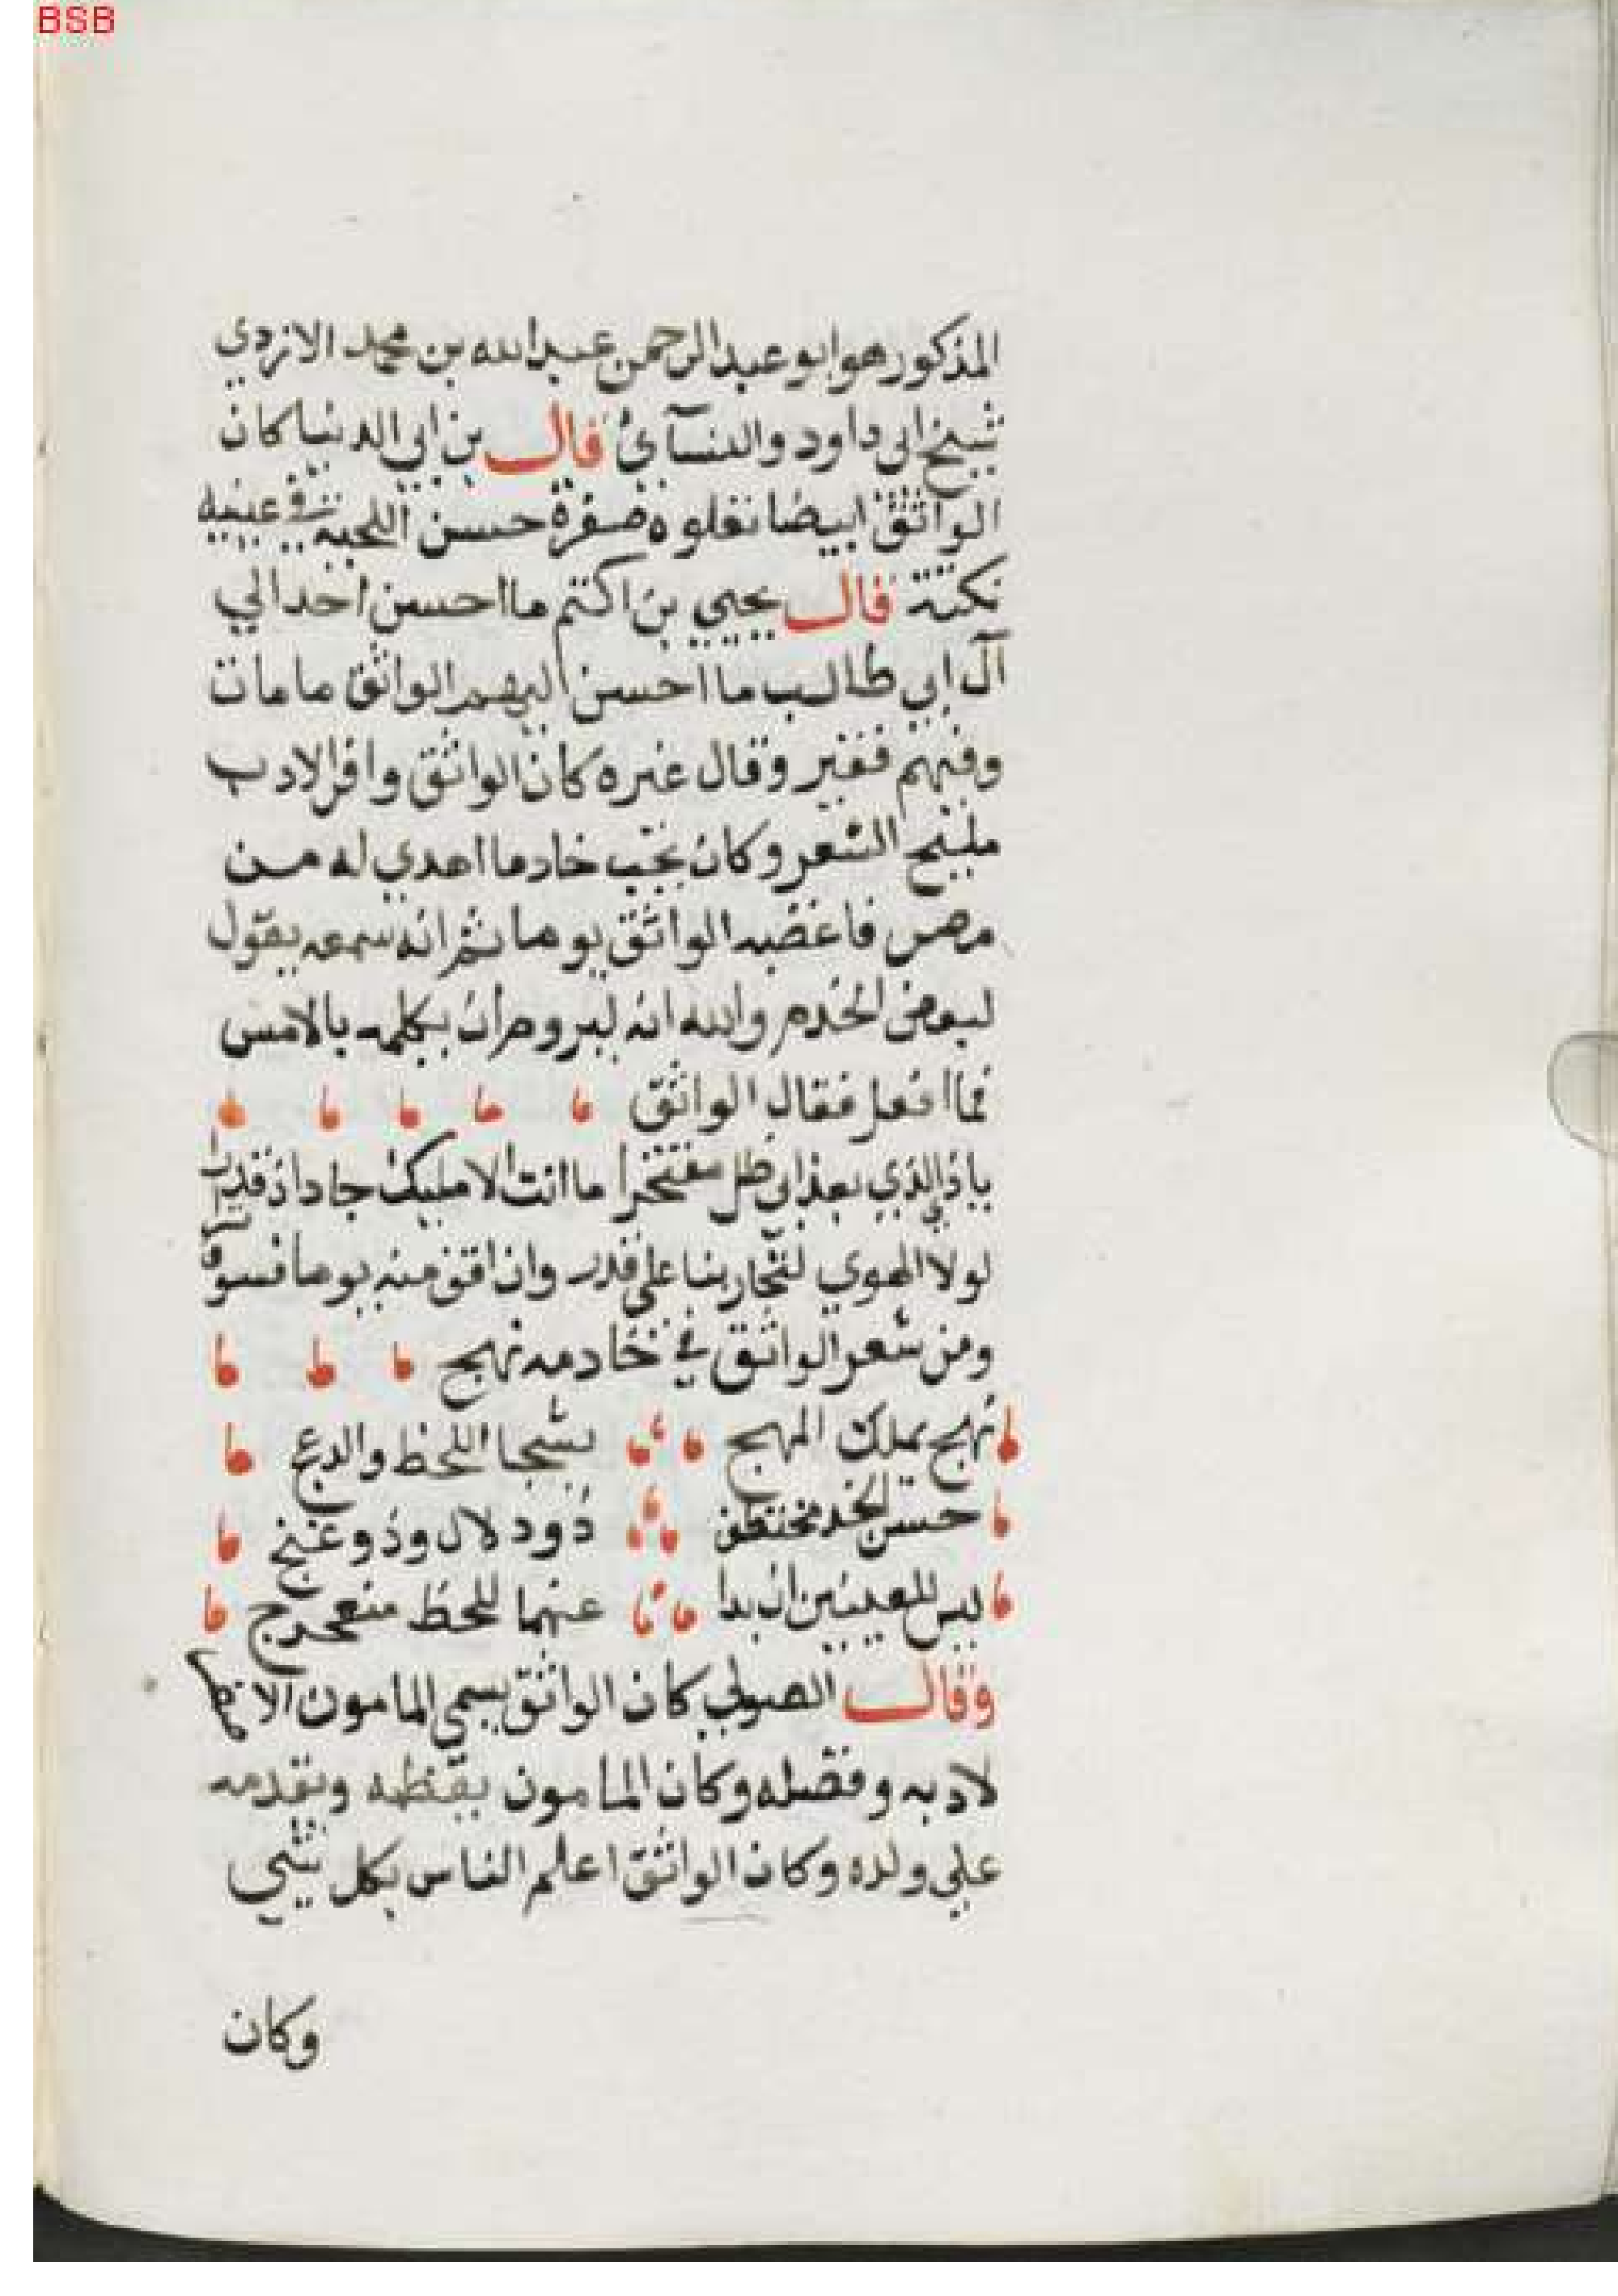 BSB
المذكور هو ابو عبد الرحمن عبد الله بن محمد الازدي
شيخ ابي داود والنسآئ قال بن ابي الدنيا كان
الواثق ابيضا تعلوه صفرة حسن اللحية في عينيه
نكتة قال يحيي بن اكتم ما احسن احد الي
آل ابي طالب ما احسن اليهم الواثق ما مات
وفيهم فقير وقال غيره كان الواثق وافر الادب
مليح الشعر وكان يحب خادما اهدي له من
مصر فاغضبه الواثق يوما ثم انه سمعه يقول
لبعض الخدم والله انه ليروم ان يكلمه بالامس
فما افعل فقال الواثق
ياذالذي بعذابي ظل مفتخرا ما انت الا مليك جاد اذ قدرا
لولا الهوي لتجارينا علي قدر وان افق منه يوما فسوف
ومن شعر الواثق في خادمه نهج
نهج يملك المهج بشجا اللحظ والدعج
حسن الخد مخنطن ذو دلال وذو غنج
ليس للعينين ان بدا عنهما للحظ منعرج
وقال الصولي كان الواثق يسمي المامون الاصغر
لادبه وفضله وكان المامون يعظمه ويقدمه
علي ولده وكان الواثق اعلم الناس بكل شي
وكان